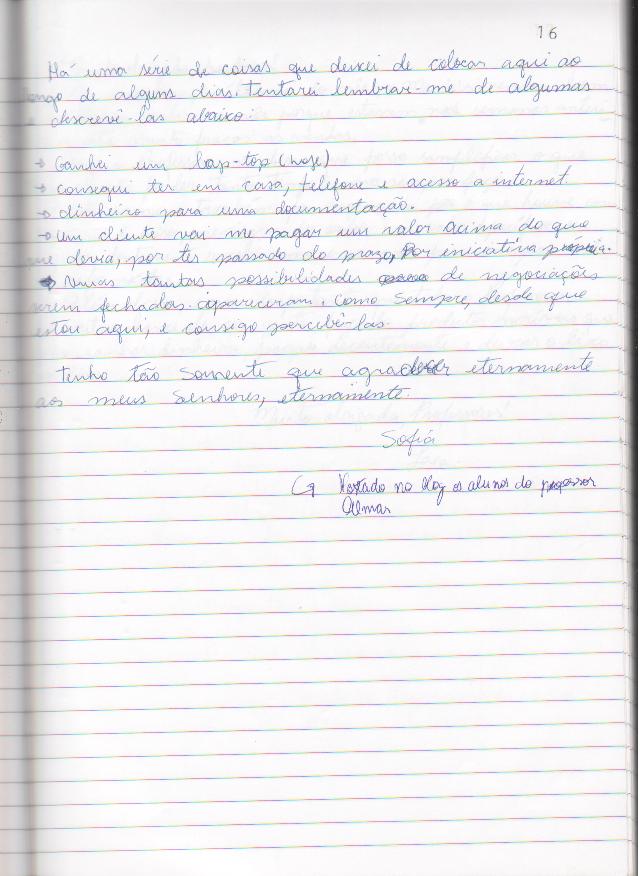 16
Há uma série de coisas que deixei de colocar aqui ao
longo de alguns dias. Tentarei lembrar-me de algumas
e descrevê-las abaixo:
→ Ganhei um lap-top (hoje)
→ consegui ter em casa, telefone e acesso a internet.
→ dinheiro para uma documentação.
→ um cliente vai me pagar um valor acima do que
me devia, por ter passado do prazo, Por iniciativa própria.
→ Numas tantas possibilidades de negociações
serem fechadas. apareceram. como sempre, desde que
estou aqui, e consigo percebê-las.
Tenho tão somente que agradecer eternamente
aos meus Senhores, eternamente.
Sofia
↳ Postado no blog os alunos do professor